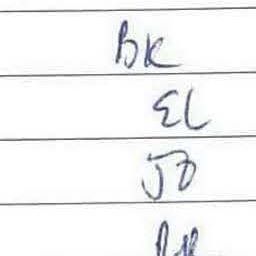 BK
EL
JD